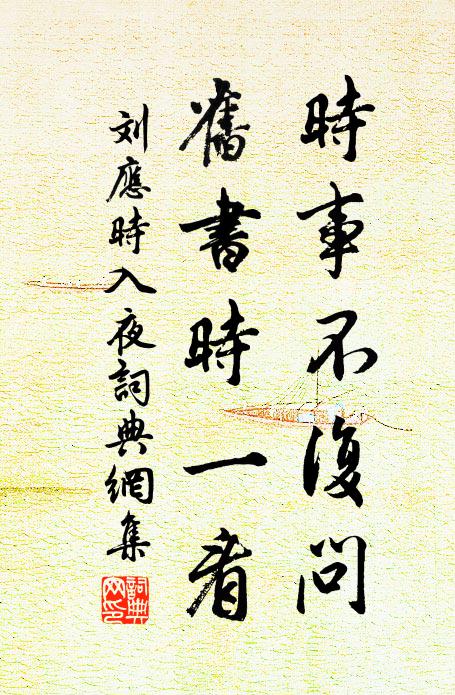 時事不復問
舊書時一看
刘應時入夜詞典網集
詞典网印